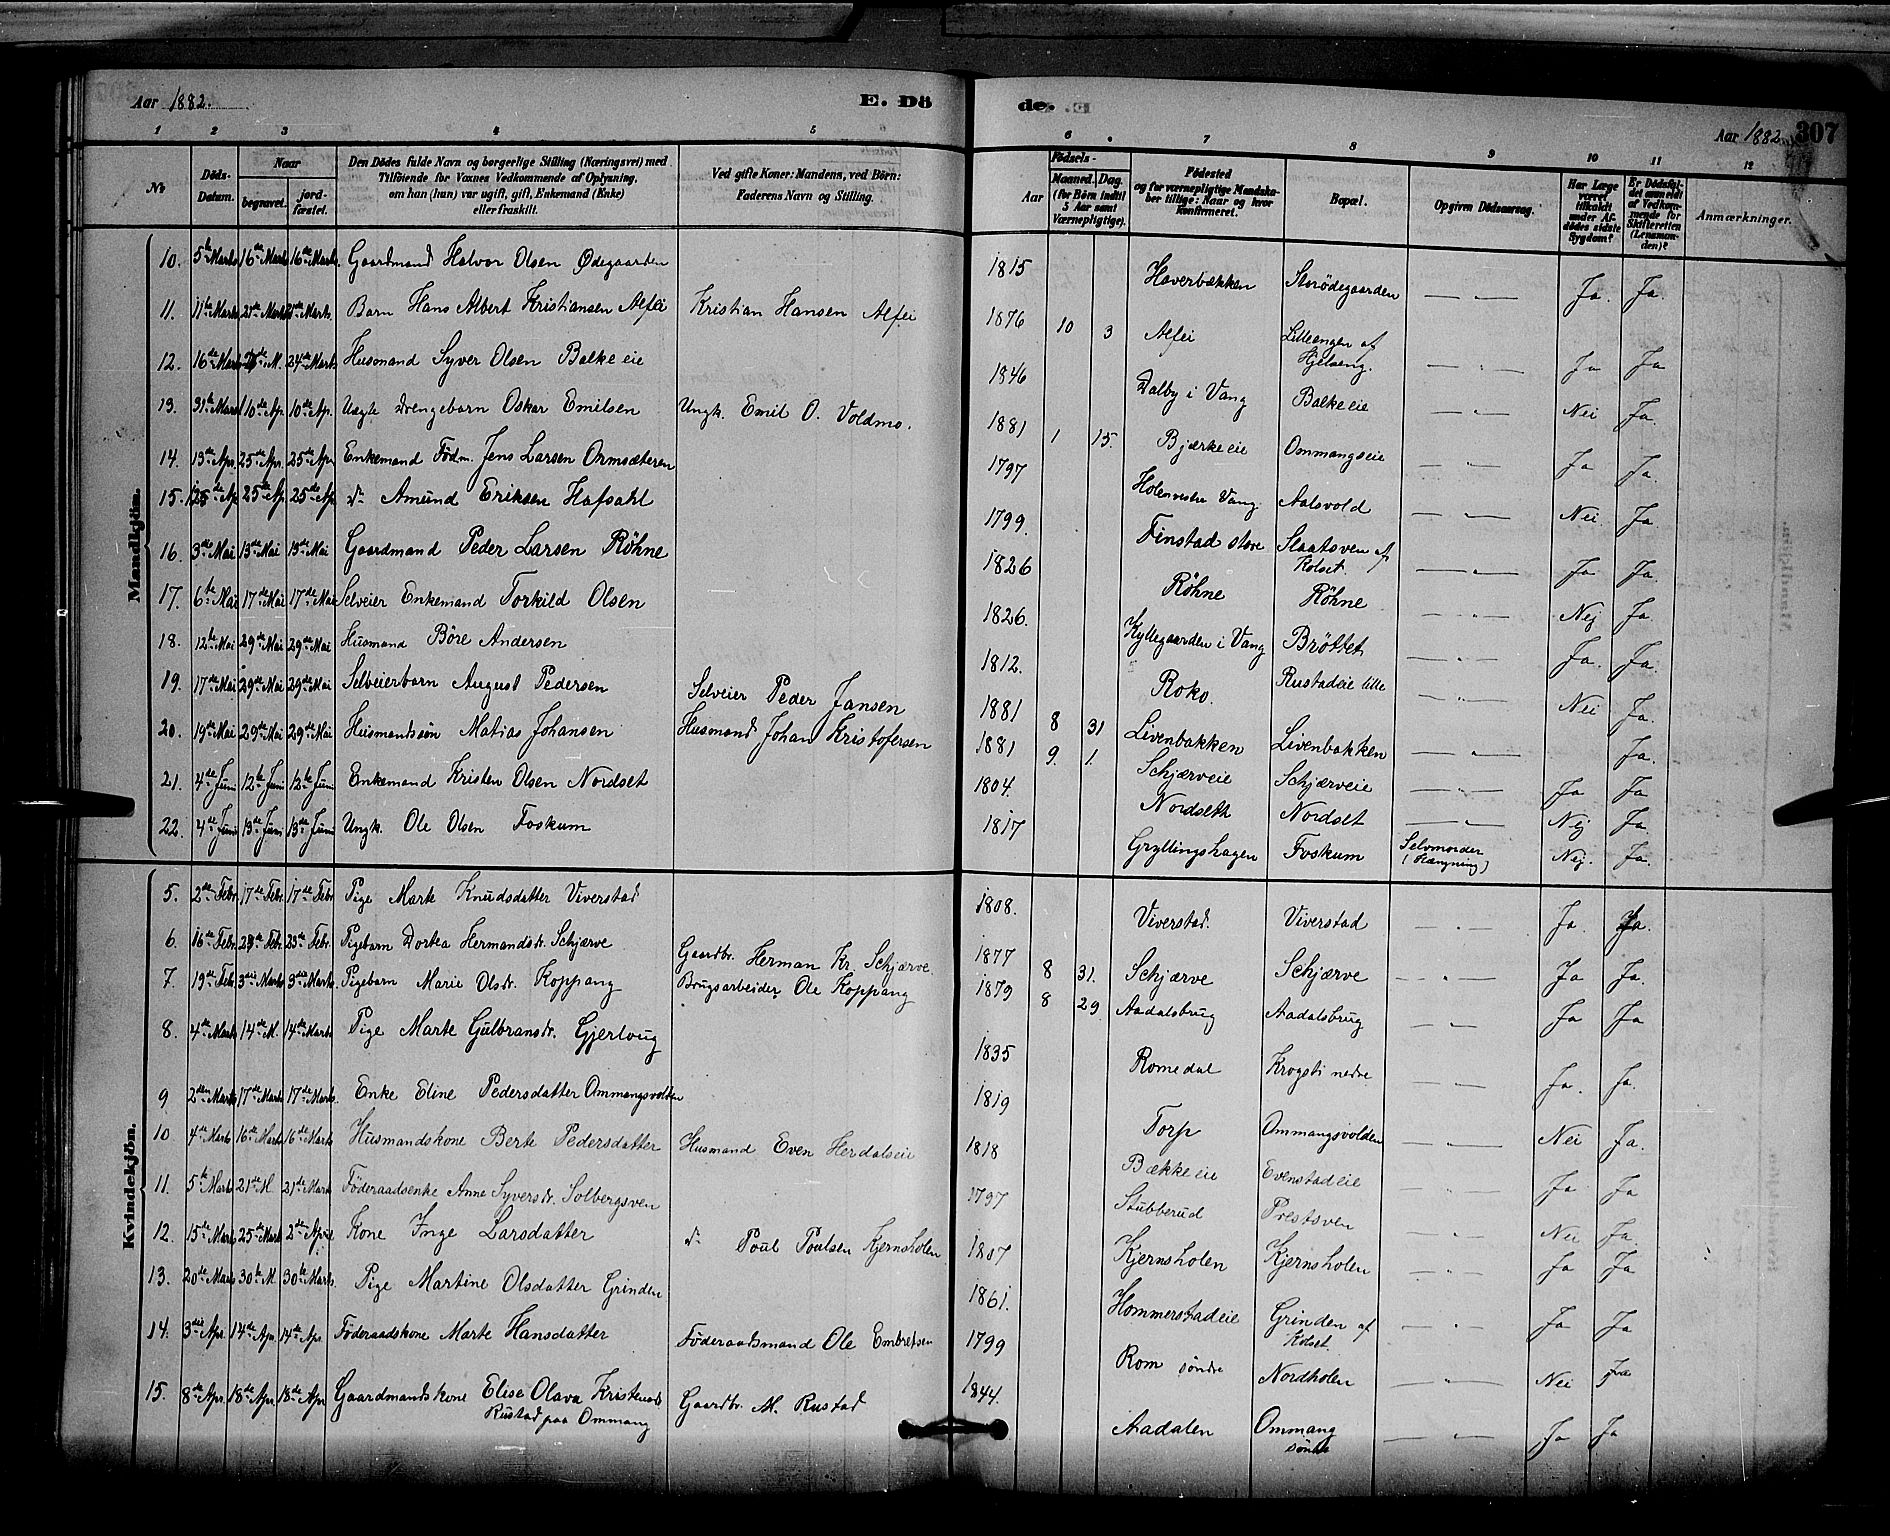 Aar 1882. E. Dö de. Aar 1882 307
1 2 3 4 5 6 7 8 9 10 11 12
No
Döds-Datum.
Naar
begravet.
jordfæstet.
Den Dödes fulde Navn og borgerlige Stilling (Næringsvei) med
Tilföiende for Voxnes Vedkommende af Oplysning,
om han (hun) var ugift, gift, Enkemand (Enke)
eller fraskilt.
Ved gifte Koner: Mandens, ved Börn:
Faderens Navn og Stilling.
Födsels-
Aar Maaned. Dag.
(for Börn indtil 5 Aar samt Værnepligtige).
Födested
og for værnepligtige Mandskaber tillige: Naar og hvor konfirmeret.
Bopæl.
Opgiven Dödsaarsag.
Har Læge været tilkaldt under Afdödes sidste Sygdom?
Er Dödsfaldet anmeldt af Vedkommende for Skifteretten (Lensmanden)?
Anmærkninger.
Mandkjön.
10. 5te Marts 16de Marts 16de Marts. Gaardmand Halvor Olsen Ødegaarden 1815 Haverbakken Storödegaarden — " — Ja. Ja.
11. 11te Marts 21de Marts 21de Marts. Barn Hans Albert Kristiansen Alfei Kristian Hansen Alfei 1876 10 3 Alfei Lilleengen af Hjelseng. — " — Ja Ja
12. 16de Marts 24de M. 24de Marts. Husmand Syver Olsen Balke eie 1846 Dalby i Vang Balkeeie — " — Nei Ja.
13. 31te Marts 10de Ap. 10de Ap. Uægte Drengebarn Oskar Emilsen Ungk. Emil O. Voldmo. 1881 1 15. Bjærkeeie Ommangseie — " — Ja Ja.
14. 13de Apr. 25de Ap. 25de Ap Enkemand Födm. Jens Larsen Ormsæteren 1797 Holenvestre Vang Aalsvold — " — Nei Ja
15. 25de Ap. 25de Ap. do Amund Eriksen Hafsahl 1799. Finstad store Slaatsven af Kolset — " — Ja Ja.
16. 3de Mai 13de Mai 13de Mai Gaardmand Peder Larsen Röhne 1826 Röhne Röhne — " — Nej Ja.
17. 6te Mai 17de Mai 17de Mai Selveier Enkemand Torkild Olsen 1826. Kyllegaarden i Vang Bröttet — " — Ja. Ja.
18. 12te Mai 29de Mai 29de Mai Husmand Böre Andersen 1812. Roko. Rustadeie lille — " — Nei Ja.
19. 17de Mai 29de Mai 29de Mai Selveierbarn August Pedersen Selveier Peder Jansen 1881 8 31 Livenbakken Livenbakken — " — Ja.
20. 19de Mai 29de Mai 29de Mai Husmandssön Matias Johansen Husmand Johan Kristofersen 1881 9. 1. Schjærveie Schjærveie — " — Ja Ja
21. 4de Juni 12te Juni 12te Juni Enkemand Kristen Olsen Nordset 1804. Nordseth Nordset — " — Nej Ja.
22. 4de Juni 13de Juni 13de Juni Ungk. Ole Olsen Foskum 1817 Gryllingshagen Foskum Selvmorder (Hængning) Nej. Ja.
Kvindekjön.
5. 2den Febr. 17de Febr. 17de Febr Pige Marte Knudsdatter Viverstad 1808. Viverstad. Viverstad — " — Ja. Ja.
6. 16de Febr. 23de Febr. 23de Febr. Pigebarn Dortea Hermandsdr. Schjærve Gaardbr. Herman Kr. Schjærve. 1877 8 31. Schjærve Schjærve — " — Ja Ja.
7. 19de Febr. 3die Marts 3die Marts. Pigebarn Marie Olsdr. Koppang Brugsarbeider Ole Koppang 1879 8 29. Aadalsbrug Aadalsbrug — " — Ja Ja
8. 4de Marts 14de M. 14de Marts. Pige Marte Gulbransdr. Gjerloug 1835 Romedal Krogsti nedre — " — Ja. Ja.
9 2den Marts 17de Marts 17de Marts. Enke Eline Pedersdatter Ommangsvolden 1819 Torp Ommangsvolden — " — Nei Ja.
10 4de Marts 16de Marts 16de Marts Husmandskone Berte Pedersdatter Husmand Even Herdalseie 1818 Bækkeeie Evenstadeie — " — Ja. Ja
11. 5te Marts 21de M. 21de Marts Föderaadsenke Anne Syversdr. Solbergsven 1797 Stubberud Prestsven — " — Nei Ja.
12. 15de Marts 25de Marts 2den April Kone Inge Larsdatter do Poul Poulsen Kjernsholen 1807 Kjernsholen Kjernsholen — " — Ja Ja
13. 20de Marts 30te M. 30te Marts. Pige Martine Olsdatter Grinden 1861. Hommerstadeie Grinden af Kolset — " — Ja Ja
14. 3die Apr. 14de Apr. 14de Apr. Föderaadskone Marte Hansdatter Föderaadsmand Ole Embretsen 1799 Rom söndre Nordholen — " — Nei Ja
15. 8de Apr. 18de Apr. 18de Apr Gaardmandskone Elise Olava Rustad paa Ommang Gaardbr. M. Rustad 1844. Aadalen Ommang söndre — " — Ja Ja